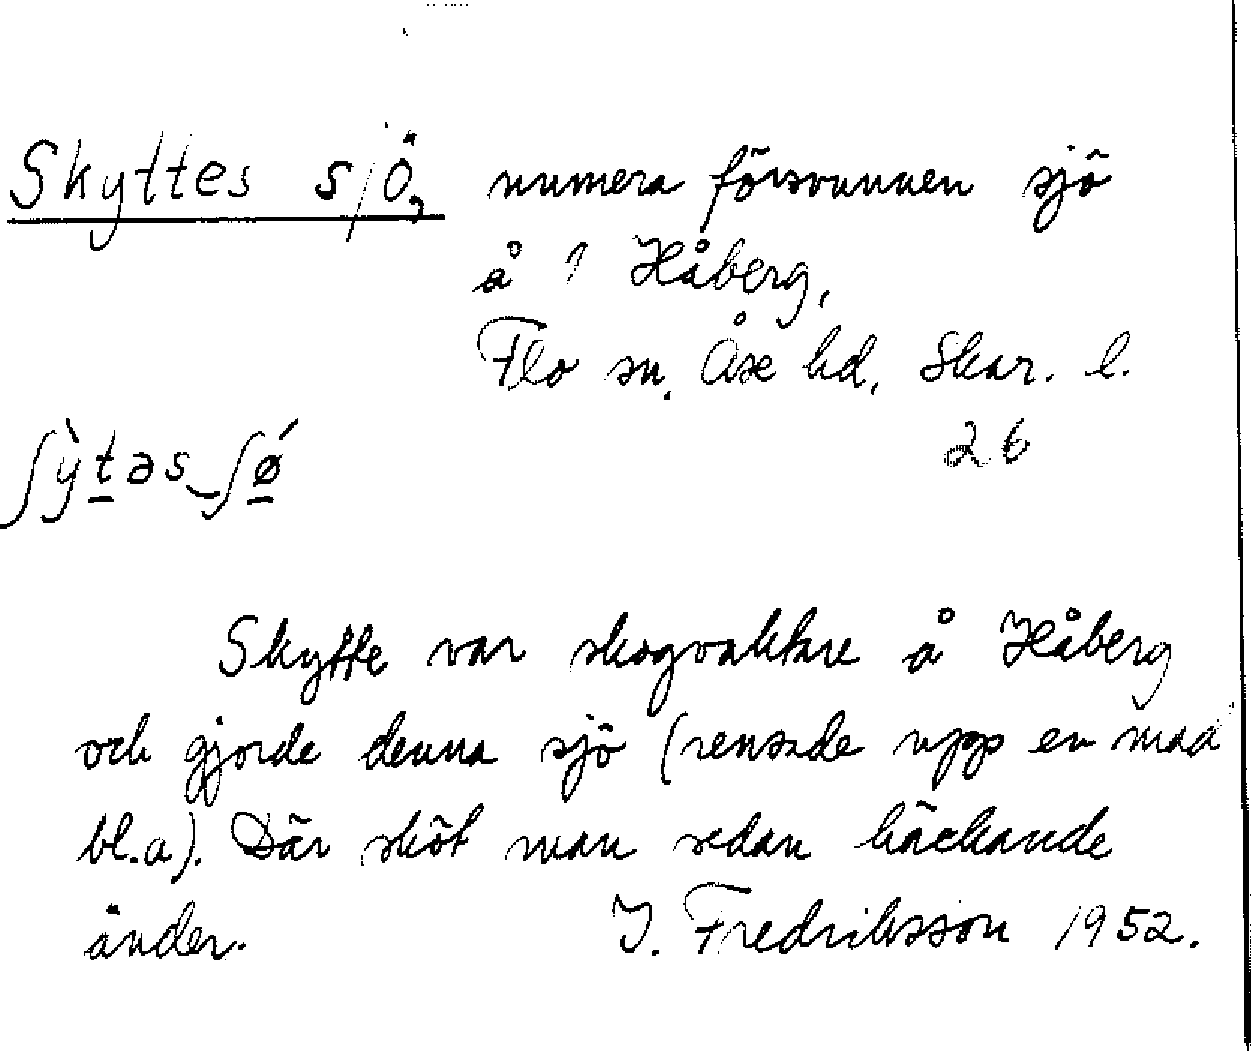 Skyttes sjö, numera försvunnen sjö
å 1 Håberg,
Flo sn. Åse hd. Skar. l.
26
ʃỳtəs‿ʃǿ
Skytte var skogvaktare å Håberg
och gjorde denna sjö (rensade upp en mad
bl.a). Där sköt man sedan häckande
änder. I. Fredriksson 1952.